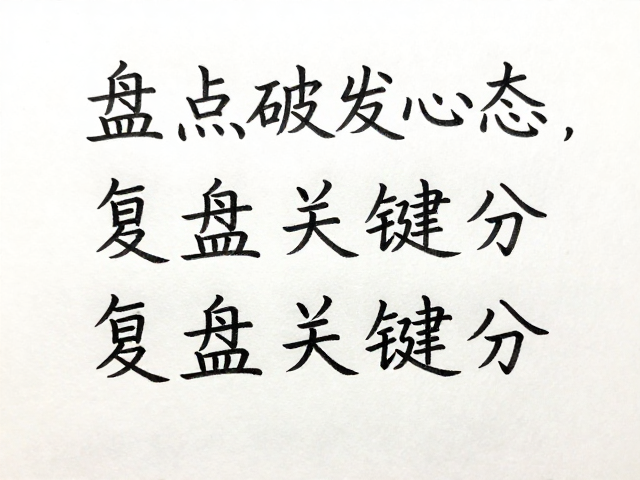 盘点破发心态,
复盘关键分
复盘关键分